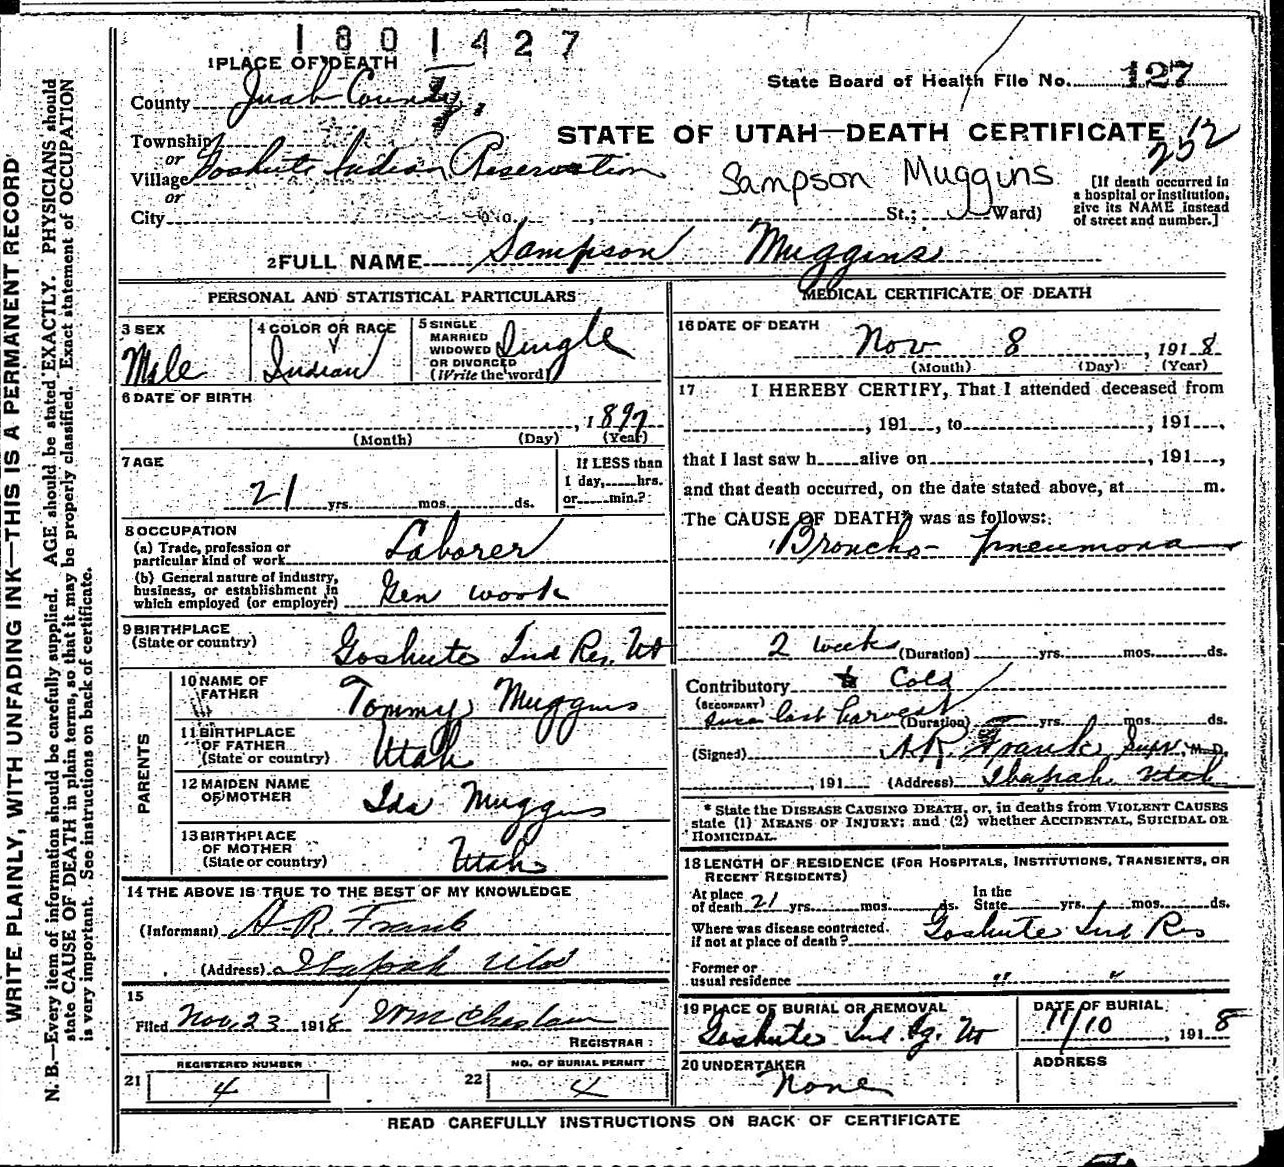 1801427
1 PLACE OF DEATH
State Board of Health File No. 127
County Juab County,
STATE OF UTAH—DEATH CERTIFICATE
252
Township
or
Village Goshute Indian Reservation
Sampson Muggins
or
City No. , St.; Ward)
[If death occurred in
a hospital or institution,
give its NAME instead
of street and number.]
2 FULL NAME Sampson Muggins
PERSONAL AND STATISTICAL PARTICULARS
3 SEX
Male
4 COLOR OR RACE
Indian
5 SINGLE
MARRIED
WIDOWED
OR DIVORCED
(Write the word)
Single
6 DATE OF BIRTH
, 1897
(Month) (Day) (Year)
7 AGE
21 yrs. mos. ds.
If LESS than
1 day, hrs.
or min.?
8 OCCUPATION
(a) Trade, profession or
particular kind of work Laborer
(b) General nature of industry,
business, or establishment in
which employed (or employer) Gen work
9 BIRTHPLACE
(State or country) Goshute Ind Res. Ut
PARENTS
10 NAME OF
FATHER Tommy Muggins
11 BIRTHPLACE
OF FATHER
(State or country) Utah
12 MAIDEN NAME
OF MOTHER Ida Muggins
13 BIRTHPLACE
OF MOTHER
(State or country) Utah
14 THE ABOVE IS TRUE TO THE BEST OF MY KNOWLEDGE
(Informant) A. R. Frank
(Address) Ibapah Utah
15
Filed Nov. 23 1918 Wm
REGISTRAR
REGISTERED NUMBER
21 4
NO. OF BURIAL PERMIT
22 4
MEDICAL CERTIFICATE OF DEATH
16 DATE OF DEATH
Nov 8 , 1918
(Month) (Day) (Year)
17 I HEREBY CERTIFY, That I attended deceased from
, 191 , to , 191 ,
that I last saw h alive on , 191 ,
and that death occurred, on the date stated above, at m.
The CAUSE OF DEATH* was as follows:
Broncho- pneumona
2 week (Duration) yrs. mos. ds.
Contributory Cold
(SECONDARY)
since last harvest (Duration) yrs. mos. ds.
(Signed) A R Frank Supt. M. D.
, 191 (Address) Ibapah Utah
* State the DISEASE CAUSING DEATH, or, in deaths from VIOLENT CAUSES
state (1) MEANS OF INJURY; and (2) whether ACCIDENTAL, SUICIDAL OR
HOMICIDAL.
18 LENGTH OF RESIDENCE (FOR HOSPITALS, INSTITUTIONS, TRANSIENTS, OR
RECENT RESIDENTS)
At place
of death 21 yrs. mos. ds.
In the
State yrs. mos. ds.
Where was disease contracted.
if not at place of death? Goshute Ind Res
Former or
usual residence " "
19 PLACE OF BURIAL OR REMOVAL
Goshute Ind. Ut
DATE OF BURIAL
11/10 , 1918
20 UNDERTAKER
None
ADDRESS
READ CAREFULLY INSTRUCTIONS ON BACK OF CERTIFICATE
WRITE PLAINLY, WITH UNFADING INK—THIS IS A PERMANENT RECORD
N. B.—Every item of information should be carefully supplied. AGE should be stated EXACTLY. PHYSICIANS should
state CAUSE OF DEATH in plain terms, so that it may be properly classified. Exact statement of OCCUPATION
is very important. See instructions on back of certificate.